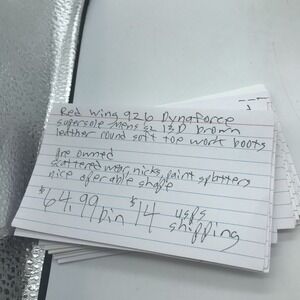 Red Wing 926 Dynaforce
supersole mens sz 13D brown
leather round soft toe work boots
pre owned
scattered wear, nicks, paint splatters
nice operable shape
$64.99 bin $14 usps
shipping